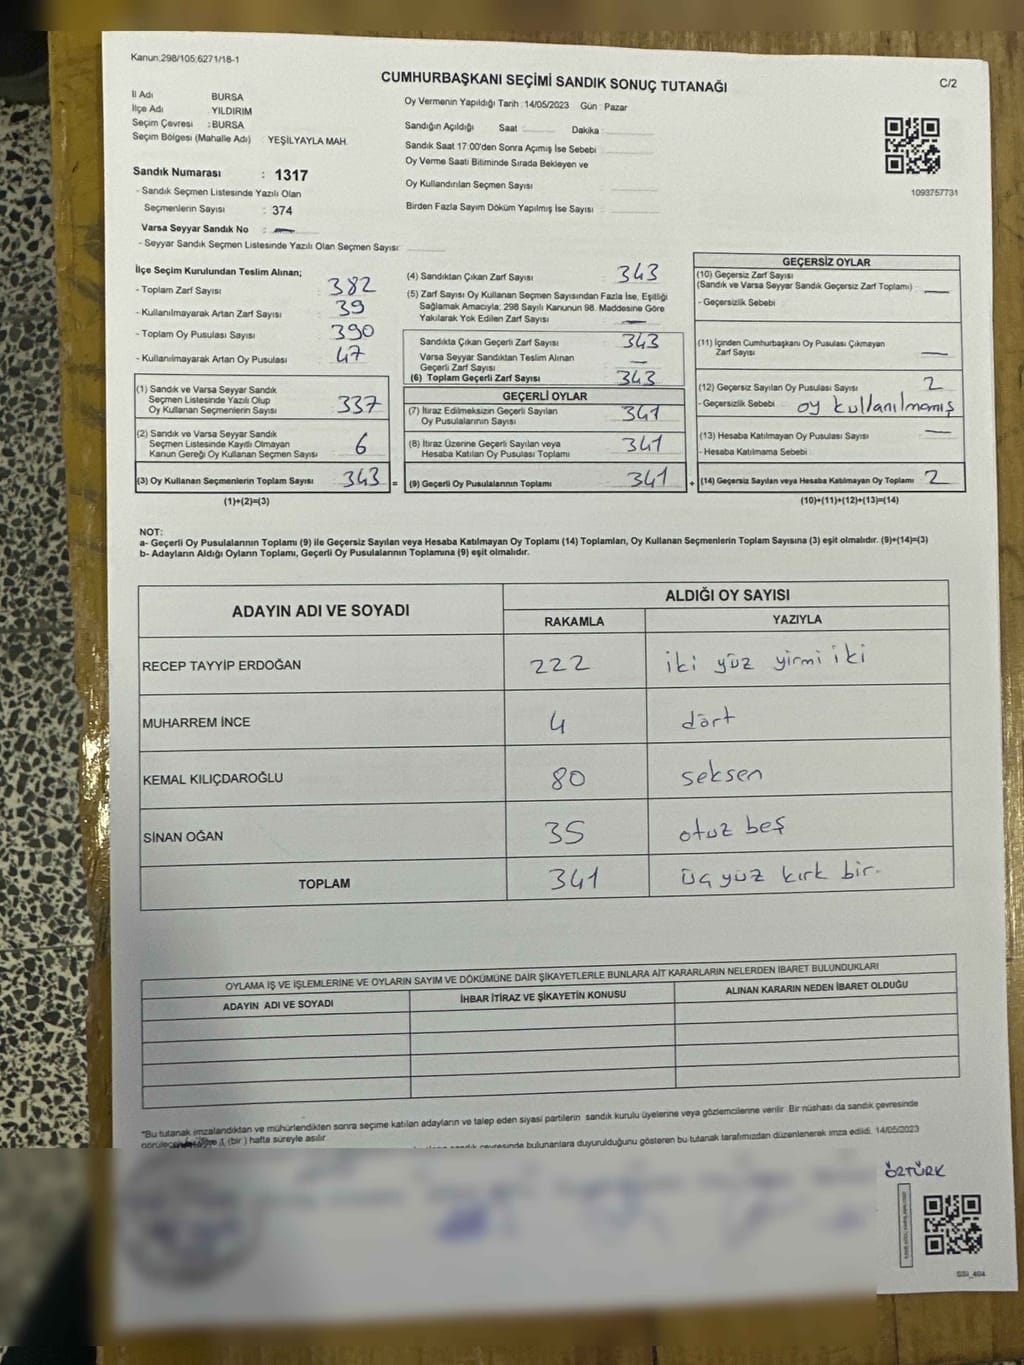 Kanun:298/105;6271/18-1
CUMHURBAŞKANI SEÇİMİ SANDIK SONUÇ TUTANAĞI
C/2
İl Adı BURSA
İlçe Adı YILDIRIM
Seçim Çevresi : BURSA
Seçim Bölgesi (Mahalle Adı) : YEŞİLYAYLA MAH.
Oy Vermenin Yapıldığı Tarih : 14/05/2023 Gün : Pazar
Sandığın Açıldığı Saat Dakika :
Sandık Saat 17:00'den Sonra Açımış İse Sebebi
Oy Verme Saati Bitiminde Sırada Bekleyen ve
Oy Kullandırılan Seçmen Sayısı :
Birden Fazla Sayım Döküm Yapılmış İse Sayısı :
1093757731
Sandık Numarası : 1317
- Sandık Seçmen Listesinde Yazılı Olan
Seçmenlerin Sayısı : 374
Varsa Seyyar Sandık No :
- Seyyar Sandık Seçmen Listesinde Yazılı Olan Seçmen Sayısı:
İlçe Seçim Kurulundan Teslim Alınan;
- Toplam Zarf Sayısı : 382
- Kullanılmayarak Artan Zarf Sayısı : 39
- Toplam Oy Pusulası Sayısı : 390
- Kullanılmayarak Artan Oy Pusulası : 47
(1) Sandık ve Varsa Seyyar Sandık
Seçmen Listesinde Yazılı Olup
Oy Kullanan Seçmenlerin Sayısı : 337
(2) Sandık ve Varsa Seyyar Sandık
Seçmen Listesinde Kayıtlı Olmayan
Kanun Gereği Oy Kullanan Seçmen Sayısı : 6
(3) Oy Kullanan Seçmenlerin Toplam Sayısı : 343 =
(1)+(2)=(3)
(4) Sandıktan Çıkan Zarf Sayısı : 343
(5) Zarf Sayısı Oy Kullanan Seçmen Sayısından Fazla İse, Eşitliği
Sağlamak Amacıyla; 298 Sayılı Kanunun 98. Maddesine Göre
Yakılarak Yok Edilen Zarf Sayısı : —
Sandıkta Çıkan Geçerli Zarf Sayısı : 343
Varsa Seyyar Sandıktan Teslim Alınan
Geçerli Zarf Sayısı : —
(6) Toplam Geçerli Zarf Sayısı : 343
GEÇERLİ OYLAR
(7) İtiraz Edilmeksizin Geçerli Sayılan
Oy Pusulalarının Sayısı : 341
(8) İtiraz Üzerine Geçerli Sayılan veya
Hesaba Katılan Oy Pusulası Toplamı : 341
(9) Geçerli Oy Pusulalarının Toplamı : 341 +
GEÇERSİZ OYLAR
(10) Geçersiz Zarf Sayısı
(Sandık ve Varsa Seyyar Sandık Geçersiz Zarf Toplamı) : —
- Geçersizlik Sebebi :
(11) İçinden Cumhurbaşkanı Oy Pusulası Çıkmayan
Zarf Sayısı : —
(12) Geçersiz Sayılan Oy Pusulası Sayısı : 2
- Geçersizlik Sebebi : oy kullanılmamış
(13) Hesaba Katılmayan Oy Pusulası Sayısı : —
- Hesaba Katılmama Sebebi :
(14) Geçersiz Sayılan veya Hesaba Katılmayan Oy Toplamı : 2
(10)+(11)+(12)+(13)=(14)
NOT:
a- Geçerli Oy Pusulalarının Toplamı (9) ile Geçersiz Sayılan veya Hesaba Katılmayan Oy Toplamı (14) Toplamları, Oy Kullanan Seçmenlerin Toplam Sayısına (3) eşit olmalıdır. (9)+(14)=(3)
b- Adayların Aldığı Oyların Toplamı, Geçerli Oy Pusulalarının Toplamına (9) eşit olmalıdır.
ADAYIN ADI VE SOYADI
ALDIĞI OY SAYISI
RAKAMLA YAZIYLA
RECEP TAYYİP ERDOĞAN 222 iki yüz yirmi iki
MUHARREM İNCE 4 dört
KEMAL KILIÇDAROĞLU 80 seksen
SİNAN OĞAN 35 otuz beş
TOPLAM 341 üç yüz kırk bir.
OYLAMA İŞ VE İŞLEMLERİNE VE OYLARIN SAYIM VE DÖKÜMÜNE DAİR ŞİKAYETLERLE BUNLARA AİT KARARLARIN NELERDEN İBARET BULUNDUKLARI
ADAYIN ADI VE SOYADI İHBAR İTİRAZ VE ŞİKAYETİN KONUSU ALINAN KARARIN NEDEN İBARET OLDUĞU
*Bu tutanak imzalandıktan ve mühürlendikten sonra seçime katılan adayların ve talep eden siyasi partilerin sandık kurulu üyelerine veya gözlemcilerine verilir. Bir nüshası da sandık çevresinde
(bir) hafta süreyle asılır.
sandık çevresinde bulunanlara duyurulduğunu gösteren bu tutanak tarafımızdan düzenlenerek imza edildi. 14/05/2023
ÖZTÜRK